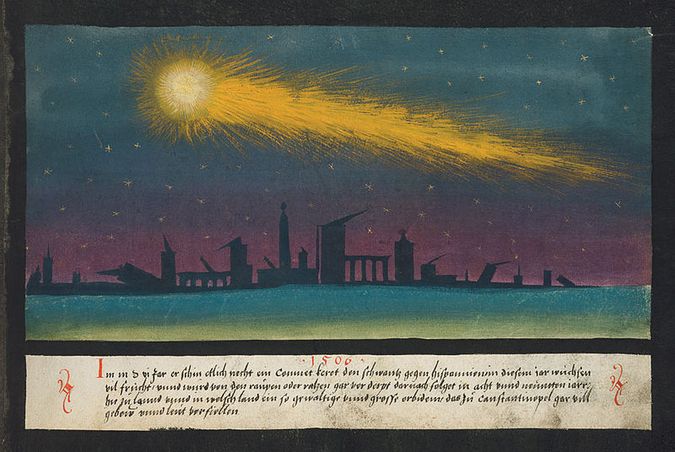 · 1506 ·
Im m d vi Jar er schin etlich necht ein Commet keret den schwantz gegen hispannien in diesem iar wuchsen
vil frücht vnnd wurd von den raüpen oder ratzen gar verderpt darnach folget in acht vnnd neünten iarr
hie zu lannd vnnd in welsch land ein so gewaltige vnnd grosse erbidem, das zu Constantinopel gar vill
gebew vnnd leut verfiellen